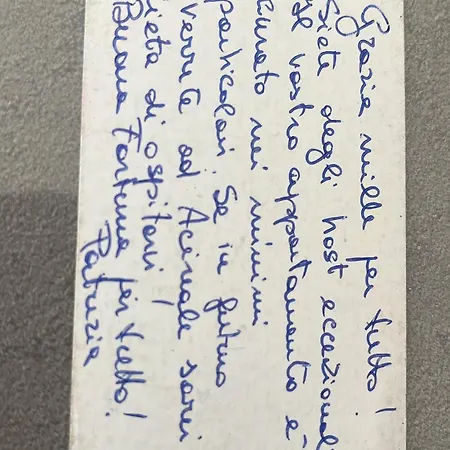 Grazie mille per tutto!
Siete degli host eccezionali
Il vostro appartamento è
curato nei minimi
particolari. Se in futuro
verrete ad Acireale sarei
lieta di ospitarvi!
Buona Fortuna per tutto!
Patrizia